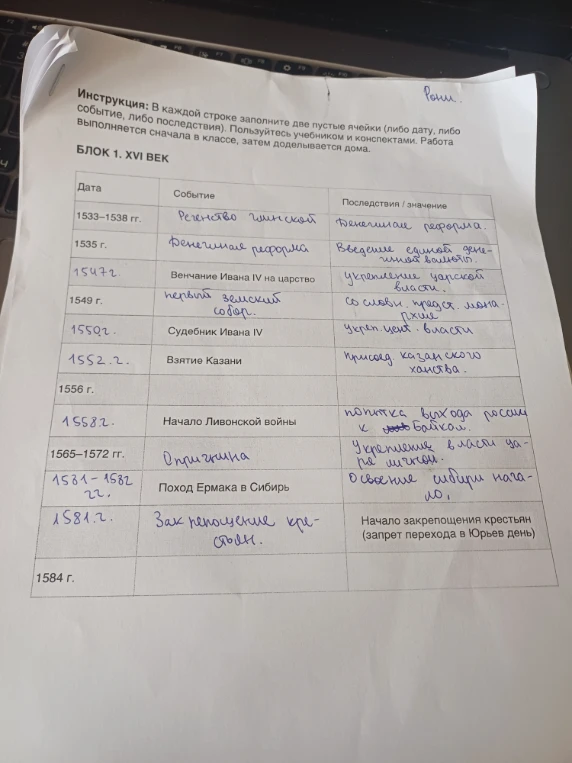 Рони.
Инструкция: В каждой строке заполните две пустые ячейки (либо дату, либо
событие, либо последствия). Пользуйтесь учебником и конспектами. Работа
выполняется сначала в классе, затем доделывается дома.
БЛОК 1. XVI ВЕК
Дата Событие Последствия / значение
1533–1538 гг. Регенство Глинской Денежная реформа.
1535 г. Денежная реформа Введение единой дене-
жной валюты.
1547г. Венчание Ивана IV на царство укрепление царской
власти.
1549 г. первый земский
собор. сословн. предст. мона-
рхия
1550г. Судебник Ивана IV укреп. цент. власти
1552.г. Взятие Казани присоед. казанского
ханства.
1556 г.
1558г. Начало Ливонской войны попытка выхода россии
к Байкал.
1565–1572 гг. Опричнина Укрепление власти ца-
ря личной.
1581–1582
гг. Поход Ермака в Сибирь Освоение сибири нача-
ло.
1581.г. Закрепощение кре-
стьян. Начало закрепощения крестьян
(запрет перехода в Юрьев день)
1584 г.